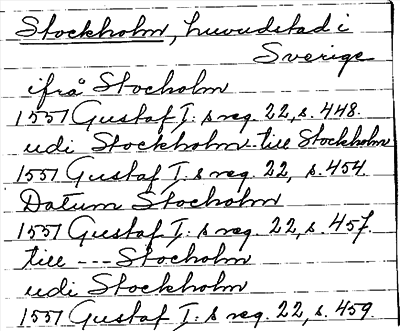 Stockholm, huvudstad i
Sverige
ifrå Stocholm
1551 Gustaf I: s reg. 22, s. 448.
udi Stockholm - till Stockholm
1551 Gustaf I: s reg. 22, s. 454.
Datum Stockholm
1551 Gustaf I: s reg. 22, s. 457.
till --- Stocholm
udi Stockholm
1551 Gustaf I: s reg. 22, s. 459.